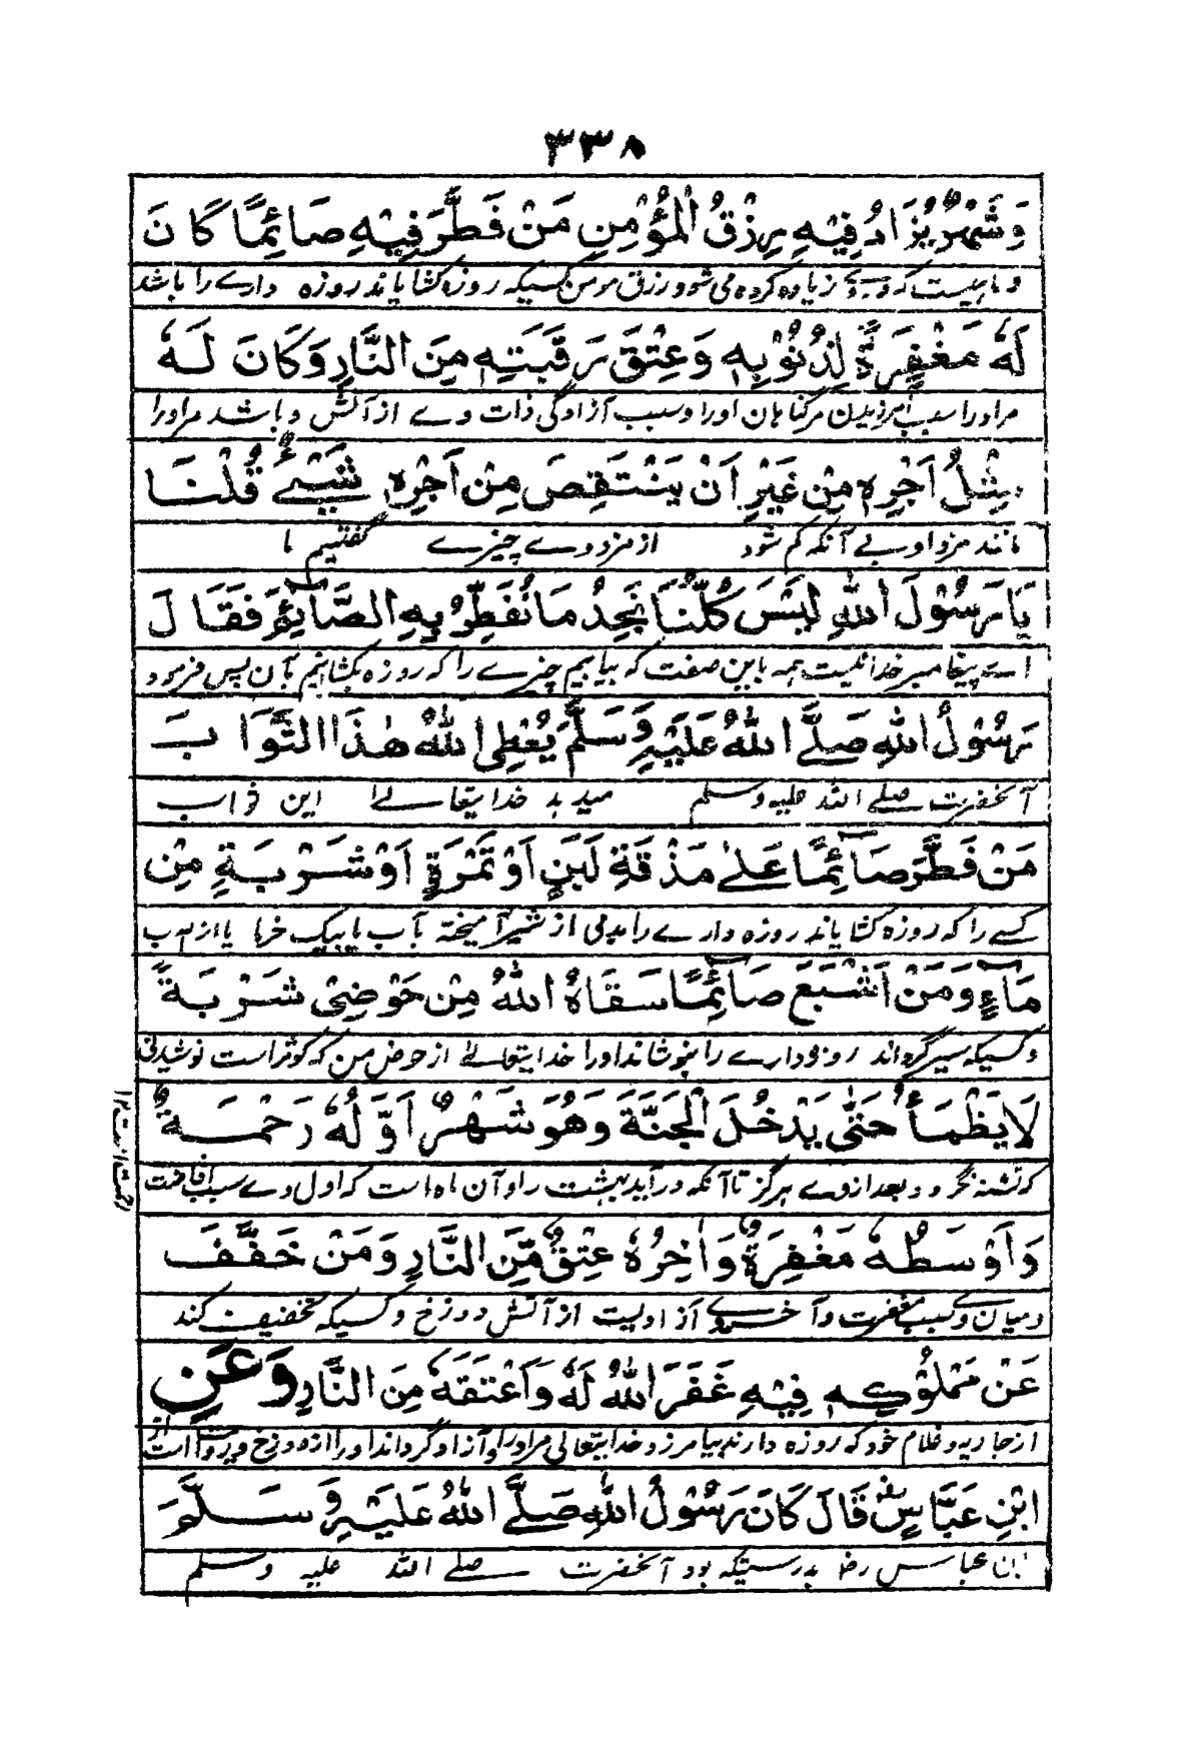 ۳۳۸
وَشَهْرٌ يُزَادُ فِيْهِ رِزْقُ الْمُؤْمِنِ مَنْ فَطَّرَ فِيْهِ صَائِمًا كَانَ
و ماهیست که زیاده کرده می شود رزق مومن کسیکه روزه کشایاند روزه دارے را باشد
لَهٗ مَغْفِرَةً لِذُنُوْبِهٖ وَعِتْقَ رَقَبَتِهٖ مِنَ النَّارِ وَكَانَ لَهٗ
مراورا سبب آمرزیدن مرگناهان اورا وسبب آزادگی ذات وے از آتش و باشد مراورا
مِثْلُ اَجْرِهٖ مِنْ غَيْرِ اَنْ يَنْتَقِصَ مِنْ اَجْرِهٖ شَيْءٌ قُلْنَا
مانند مزد او بے آنکه کم شود از مزد وے چیزے گفتیم ما
يَا رَسُوْلَ اللهِ لَيْسَ كُلُّنَا نَجِدُ مَا نُفَطِّرُ بِهِ الصَّآئِمَ فَقَالَ
اے پیغامبر خدا نیست همه باین صفت که بیابیم چیزے را که روزه بکشانیم بآن پس فرمود
رَسُوْلُ اللهِ صَلَّے اللهُ عَلَيْهِ وَسَلَّمَ يُعْطِی اللهُ هٰذَا الثَّوَابَ
آنحضرت صلے الله علیه وسلم میدهد خدایتعالےٰ این ثواب
مَنْ فَطَّرَ صَآئِمًا عَلےٰ مَذْقَةِ لَبَنٍ اَوْ تَمْرَةٍ اَوْ شَرْبَةٍ مِنْ
کسے را که روزه کشایاند روزه دارے را از شیر آمیخته بآب یا بیک خرما یا از آب
مَآءٍ وَمَنْ اَشْبَعَ صَآئِمًا سَقَاهُ اللهُ مِنْ حَوْضِیْ شَرْبَةً
و کسیکه سیر گرداند روزه دارے را بنوشاند اورا خدایتعالےٰ از حوض من که کوثر است نوشیدنی
لَا يَظْمَأُ حَتّٰی يَدْخُلَ الْجَنَّةَ وَهُوَ شَهْرٌ اَوَّلُهٗ رَحْمَةٌ
که تشنه نگردد بعد ازوے هرگز تا آنکه درآید بهشت را و آن ماه است که اول وے سبب افاضت
وَاَوْسَطُهٗ مَغْفِرَةٌ وَاٰخِرُهٗ عِتْقٌ مِّنَ النَّارِ وَمَنْ خَفَّفَ
ومیان وے سبب مغفرت و آخر وے آزادیست از آتش دوزخ و کسیکه تخفیف کند
عَنْ مَمْلُوْكِهٖ فِيْهِ غَفَرَ اللهُ لَهٗ وَاَعْتَقَهٗ مِنَ النَّارِ وَعَنِ
از جاریه و غلام خود که روزه دارند بیامرزد خدایتعالی مراورا و آزاد گرداند اورا از دوزخ و روایت است از
ابْنِ عَبَّاسٍ قَالَ كَانَ رَسُوْلُ اللهِ صَلَّے اللهُ عَلَيْهِ وَسَلَّمَ
ابن عباس رضا بدرستیکه بود آنحضرت صلے الله علیه وسلم